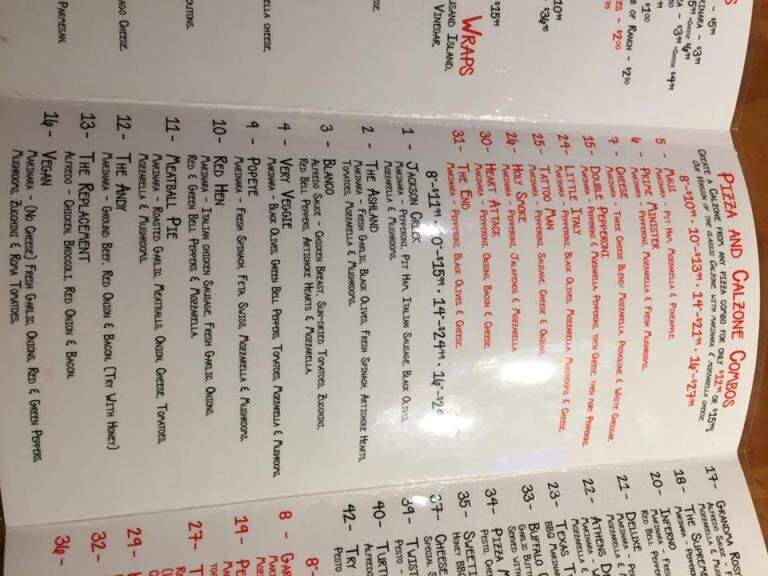 PIZZA AND CALZONE COMBOS
CREATE A CALZONE FROM ANY PIZZA COMBO FOR ONLY $12.99 OR $15.99
OUR VERSION OF THE CLASSIC CALZONE WITH MARINARA & MOZZARELLA CHEESE
8"-$10.99 · 10"-$13.99 · 14"-$21.99 · 16"-$27.99
5 - MAUI
MARINARA - PIT HAM, MOZZARELLA & PINEAPPLE.
6 - PRIME MINISTER
MARINARA - PEPPERONI, MOZZARELLA & FRESH MUSHROOMS.
7 - CHEESE
MARINARA - THREE CHEESE BLEND: MOZZARELLA, PROVOLONE & WHITE CHEDDAR.
15 - DOUBLE PEPPERONI
MARINARA - PEPPERONI & MOZZARELLA PEPPERONI, THEN CHEESE, THEN MORE PEPPERONI.
24 - LITTLE ITALY
MARINARA - PEPPERONI, BLACK OLIVES, MOZZARELLA, MUSHROOMS & CHEESE.
25 - TATTOO MAN
MARINARA - PEPPERONI, SAUSAGE, CHEESE & ONIONS.
26 - HOLY SMOKE
MARINARA - PEPPERONI, JALAPENOS & MOZZARELLA.
30 - HEART ATTACK
MARINARA - PEPPERONI, ONIONS, BACON & CHEESE.
31 - THE END
MARINARA - PEPPERONI, BLACK OLIVES & CHEESE.
8"-$11.99 · 10"-$15.99 · 14"-$24.99 · 16"-$2
1 - JACKSON CREEK
MARINARA - PEPPERONI, PIT HAM, ITALIAN SAUSAGE, BLACK OLIVES,
MOZZARELLA & MUSHROOMS.
2 - THE ASHLAND
MARINARA - FRESH GARLIC, BLACK OLIVES, FRESH SPINACH, ARTICHOKE HEARTS,
TOMATOES, MOZZARELLA & MUSHROOMS.
3 - BLANCO
ALFREDO SAUCE - CHICKEN BREAST, SUN-DRIED TOMATOES, ZUCCHINI,
RED BELL PEPPERS, ARTICHOKE HEARTS & MOZZARELLA.
4 - VERY VEGGIE
MARINARA - BLACK OLIVES, GREEN BELL PEPPERS, TOMATOES, MOZZARELLA & MUSHROOMS.
9 - POPEYE
MARINARA - FRESH SPINACH, FETA, SWISS, MOZZARELLA & MUSHROOMS.
10 - RED HEN
MARINARA - ITALIAN CHICKEN SAUSAGE, FRESH GARLIC, ONIONS,
RED & GREEN BELL PEPPERS & MOZZARELLA.
11 - MEATBALL PIE
MARINARA - ROASTED GARLIC, MEATBALLS, ONION, CHEESE, TOMATOES,
MOZZARELLA & MUSHROOMS.
12 - THE ANDY
MARINARA - GROUND BEEF, RED ONION & BACON. (TRY WITH HONEY)
13 - THE REPLACEMENT
ALFREDO - CHICKEN, BROCCOLI, RED ONION & BACON.
16 - VEGAN
MARINARA - (NO CHEESE) FRESH GARLIC, ONIONS, RED & GREEN PEPPERS,
MUSHROOMS, ZUCCHINI & ROMA TOMATOES.
WRAPS
USAND ISLAND,
VINEGAR,
ELLA CHEESE
OUTONS.
ADO CHEESE
PARMESAN.
17- GRANDMA ROS
ALFREDO SAUCE - F
18 - THE SUPREME
MARINARA - P
20 - INFERNO
MARINARA - FRE
RED BELL PEP
21 - DELUXE
22 - ATHENS D
MOZZARELLA &
23 - TEXAS T
BBQ MARINAR
33 - BUFFALO C
GARLIC BUTT
SERVED WIT
34 - PIZZA M
PESTO, CHE
35 - SWEETI
HONEY BB
37 - CHEESE
SPECIAL S
39 - TWIST
PESTO -
40 - TURT
ALFREDO
42 - TRY
PESTO
8"
8 - GAR
19 - PE
27 - T
29 -
32 -
36 -